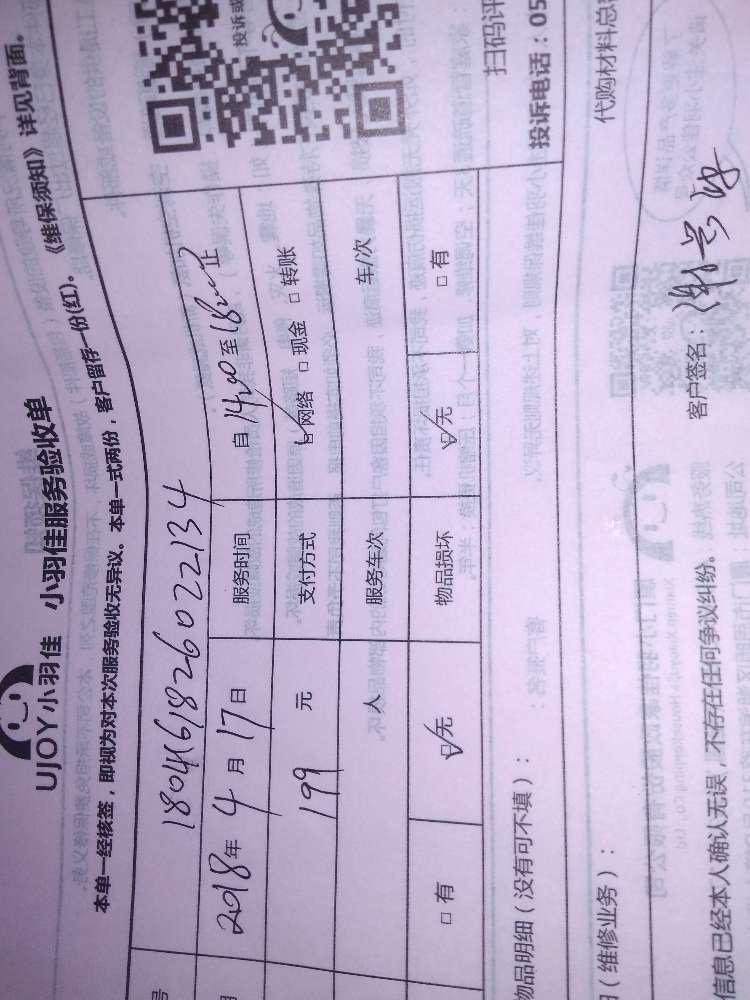 UJOY小羽佳 小羽佳服务验收单
本单一经核签，即视为对本次服务验收无异议。本单一式两份，客户留存一份(红)。《维保须知》详见背面。
号 1804161826022134
2018年4月17日 服务时间 自14:00至18:00止
199元 支付方式 ☑网络 □现金 □转账
人 服务车次 车/次
□有 ☑无 物品损坏 ☑无 □有
物品明细（没有可不填）：
投诉或
扫码评
投诉电话：05
（维修业务）：
代购材料总
信息已经本人确认无误，不存在任何争议纠纷。 客户签名：